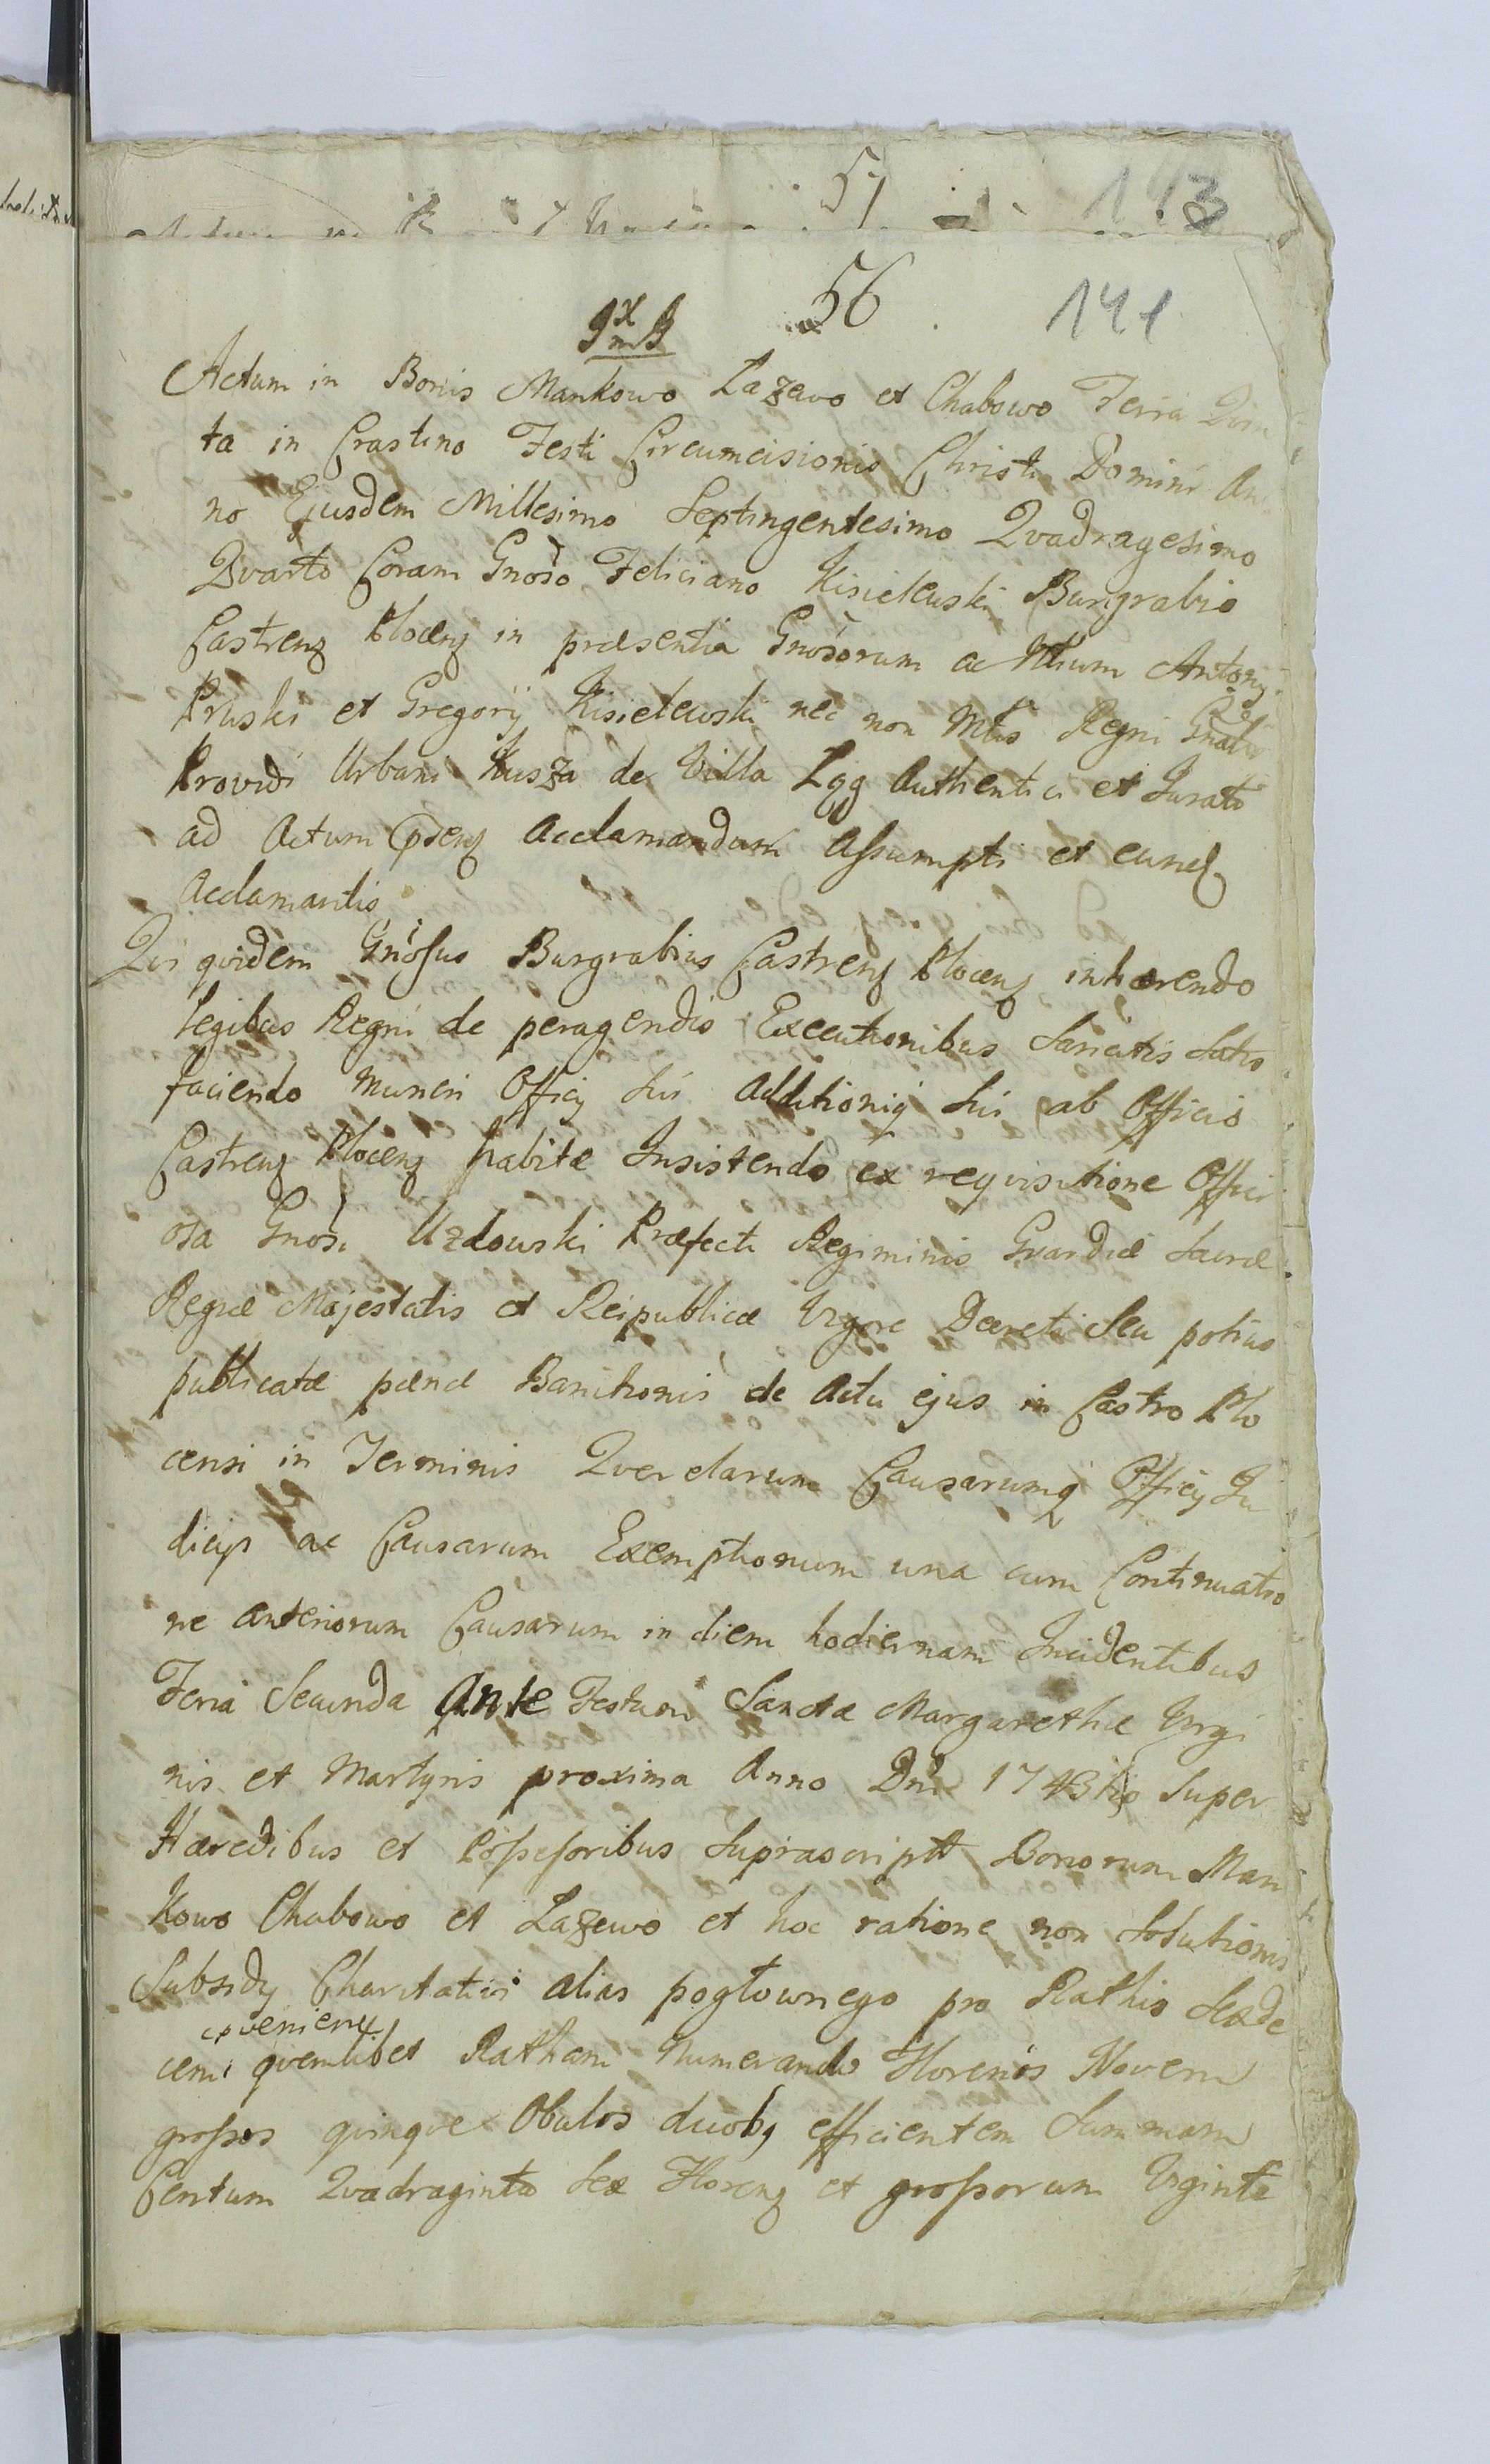 57
56
141
Actum in Bonis Mankowo Lazewo et Chabowo Feria Qvin
ta in Crastino Festi Circumcisionis Christi Domini An
no Ejusdem Millesimo Septingentesimo Qvadragesimo
Qvarto Coram Gnoso Feliciano Kisielewski Burgrabio
Castrenz Plocenz in præsentia Gnosorum ac Antonij
Pruski et Gregorij Kisielewski nec non Mtis Regni Gnalis
Providi Urbani Kusza de Villa Authentici et Jurati
ad Actum Acclamandum Assumpti et eund
Acclamantis
Qvi qvidem Gnosus Burgrabius Castrenz Plocenz inhærendo
Legibus Regni de peragendis Executionibus Sancitis Satis
faciendo Muneri Officij Sui Additionis Sui ab Officio
Castrenz Plocenz habitæ Insistendo ex reqvisitione Offici
osa Gnosi Uzdowski Præfecti Regiminis Gvardiæ Sacræ
Regiæ Majestatis et Reipublicæ Vigore Decreti Seu potius
publicatæ pænæ Banitionis de Actu ejus in Castro Plo
censi in Terminis Qverelarum Causarumq Officij Ju
dicijs ac Causarum Exemptionum una cum Continuatio
ne anteriorum Causarum in diem hodiernam Incidentibus
Feria Secunda Ante Festum Sanctæ Margarethæ Virgi
nis et Martyris proxima Anno Dni 1743tio Super
Hæredibus et Possessoribus Suprascriptt Bonorum Man
kowo Chabowo et Lazewo et hoc ratione non Solutionis
Subsidij Charitativi alias pogłownego pro Rathis Sexde
cem qvemlibet Ratham Numerando Florenos Novem
grossos qvinqve Obulos duobq efficientem Summam
Centum Qvadraginta Sex Florenz et grossorum Viginti